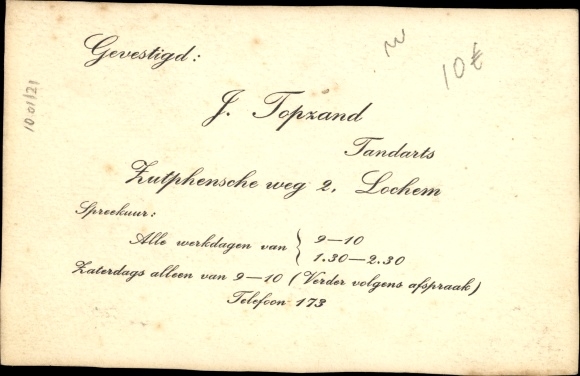 Gevestigd:
10 €
10 01/21
J. Topzand
Tandarts
Zutphensche weg 2, Lochem
Spreekuur:
Alle werkdagen van { 9—10
1.30—2.30
Zaterdags alleen van 9—10 (Verder volgens afspraak)
Telefoon 173